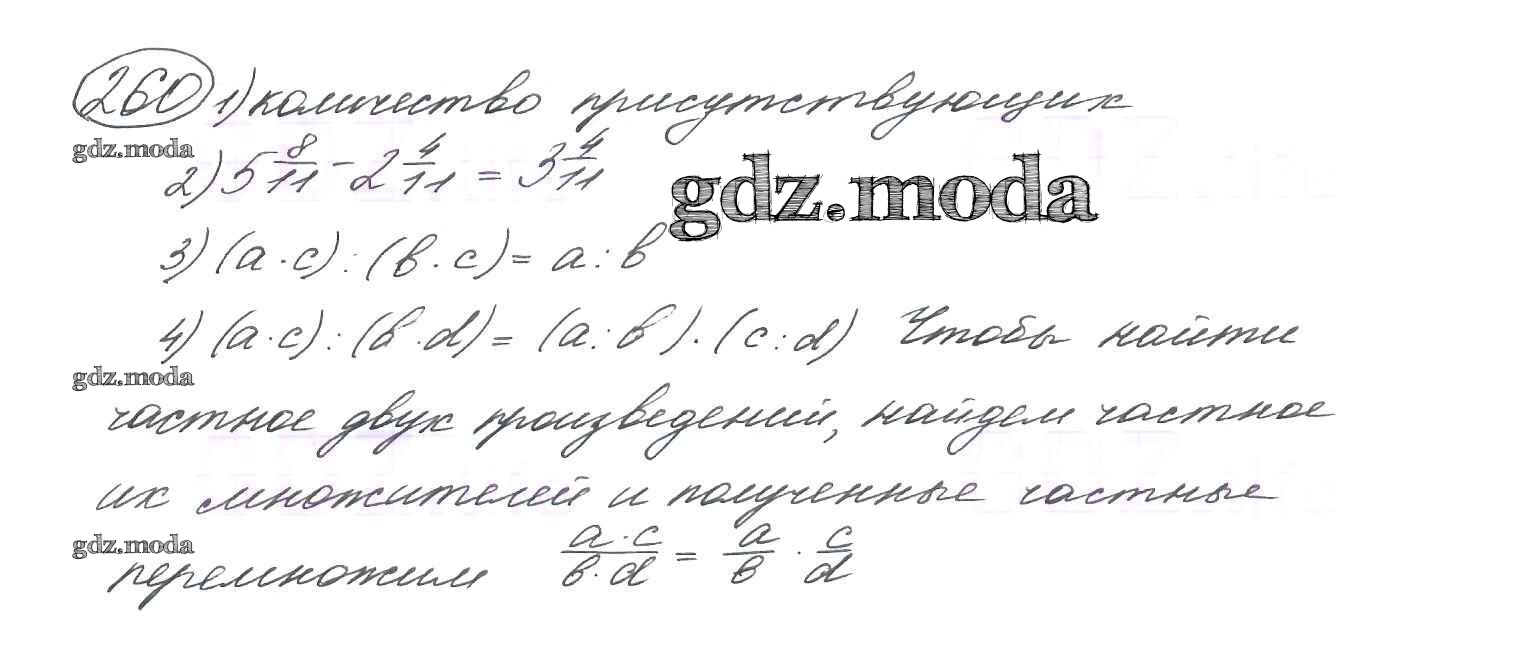 260 1) количество присутствующих
gdz.moda
2) 5 8/11 - 2 4/11 = 3 4/11
gdz.moda
3) (a · c) : (b · c) = a : b
4) (a · c) : (b · d) = (a : b) · (c : d) Чтобы найти
gdz.moda
частное двух произведений, найдем частное
их множителей и полученные частные
gdz.moda
перемножим a · c / b · d = a/b · c/d